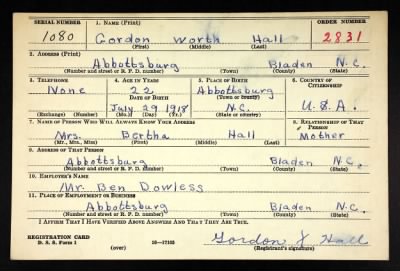 SERIAL NUMBER 1. NAME (Print) ORDER NUMBER
1080 Gordon Worth Hall 2831
(First) (Middle) (Last)
2. ADDRESS (Print)
Abbottsburg Bladen N.C.
(Number and street or R. F. D. number) (Town) (County) (State)
3. TELEPHONE 4. AGE IN YEARS 5. PLACE OF BIRTH 6. COUNTRY OF CITIZENSHIP
None 22 Abbottsburg
DATE OF BIRTH (Town or county)
July 29 1918 N.C. U.S.A.
(Exchange) (Number) (Mo.) (Day) (Yr.) (State or country)
7. NAME OF PERSON WHO WILL ALWAYS KNOW YOUR ADDRESS 8. RELATIONSHIP OF THAT PERSON
Mrs. Bertha Hall Mother
(Mr., Mrs., Miss) (First) (Middle) (Last)
9. ADDRESS OF THAT PERSON
Abbottsburg Bladen N.C.
(Number and street or R. F. D. number) (Town) (County) (State)
10. EMPLOYER'S NAME
Mr. Ben Dowless
11. PLACE OF EMPLOYMENT OR BUSINESS
Abbottsburg Bladen N.C.
(Number and street or R. F. D. number) (Town) (County) (State)
I AFFIRM THAT I HAVE VERIFIED ABOVE ANSWERS AND THAT THEY ARE TRUE.
REGISTRATION CARD
D. S. S. Form 1 (over) 16—17105 Gordon Hall
(Registrant's signature)